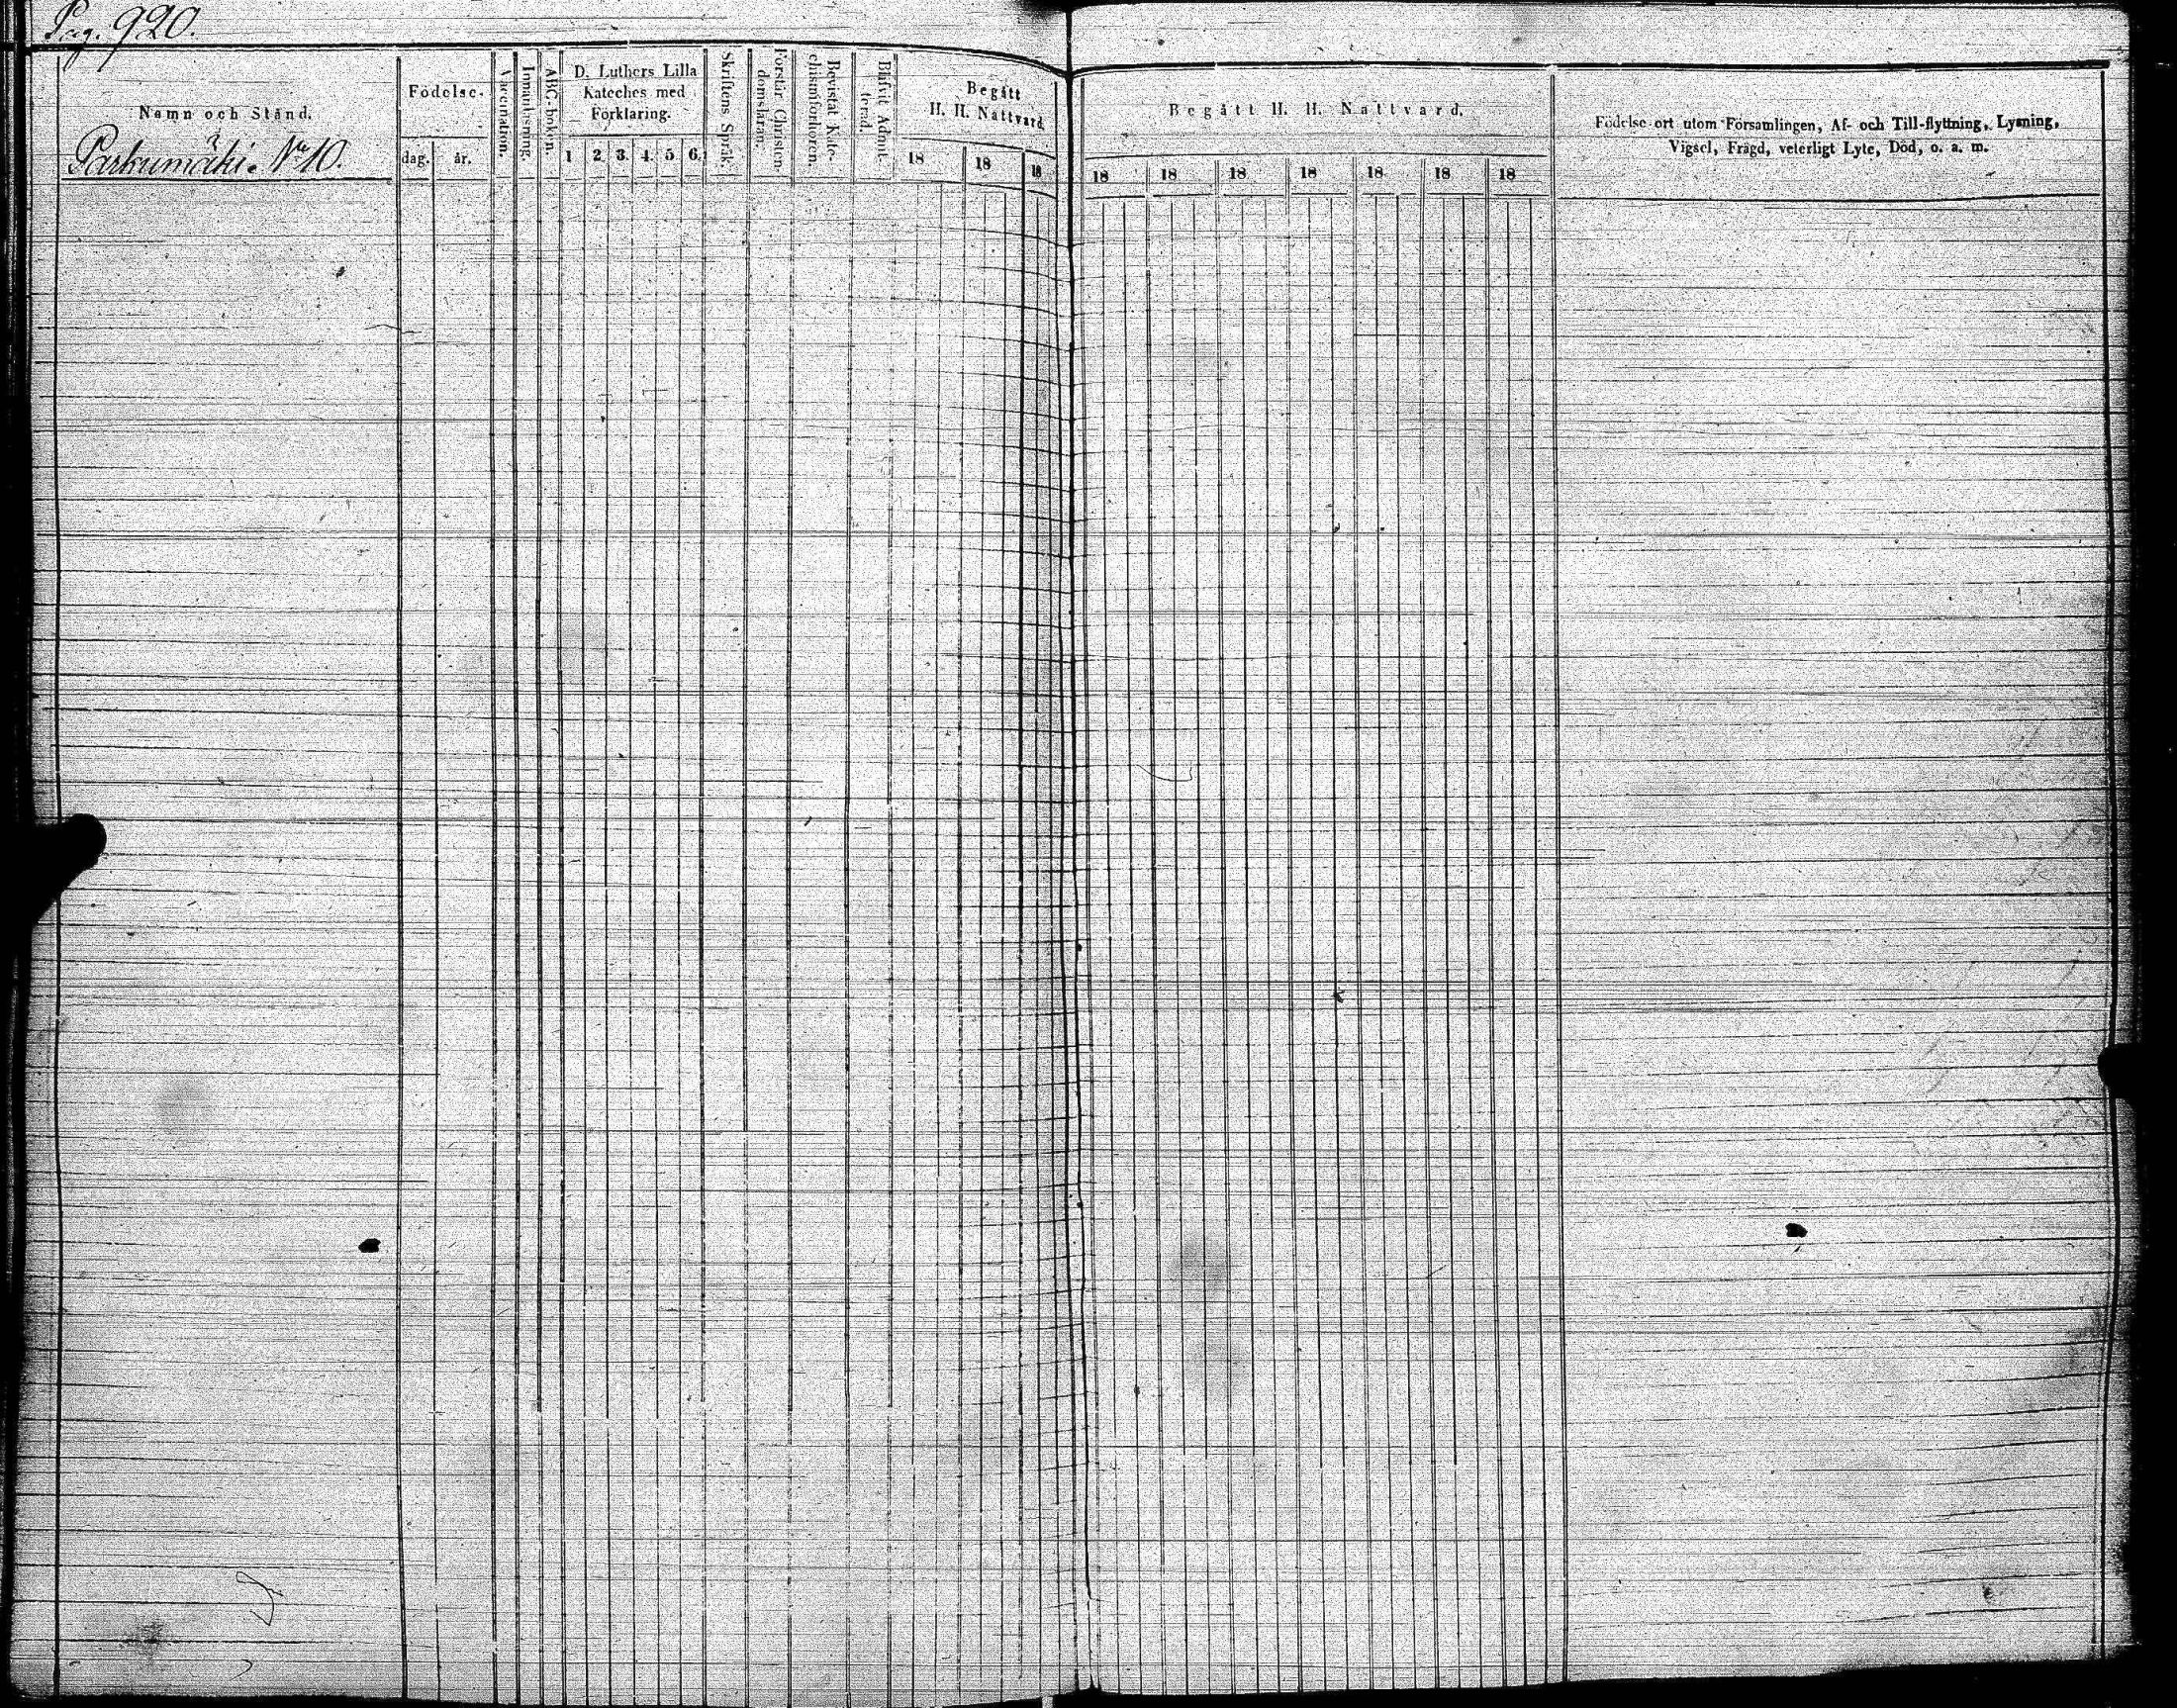 Pag. 920.
Namn och Stånd.
Parkumäki. No 10.
Födelse.
dag. år.
Vaccination.
Innanläsning.
ABC-boken.
D. Luthers Lilla
Kateches med
Förklaring.
1 2. 3. 4. 5 6.
Skriftens Språk.
Förstår Christen-
domsläran.
Bevistat Kate-
chismiförhören.
Blifvit Admit-
terad.
Begått
H. H. Nattvard.
18 18 18
Begått H. H. Nattvard.
18 18 18 18 18 18 18
Födelse ort utom Församlingen, Af- och Till-flyttning, Lysning,
Vigsel, Frägd, veterligt Lyte, Död, o. a. m.